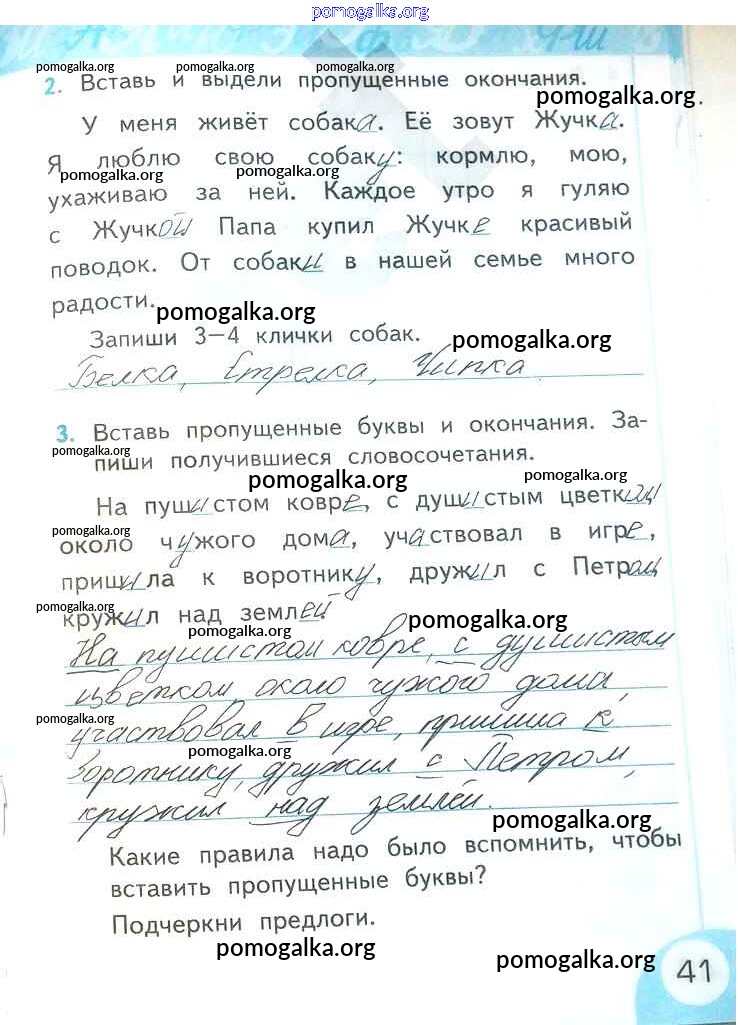 pomogalka.org
pomogalka.org pomogalka.org pomogalka.org
2. Вставь и выдели пропущенные окончания.
pomogalka.org
У меня живёт собака. Её зовут Жучка.
Я люблю свою собаку: кормлю, мою,
pomogalka.org pomogalka.org
ухаживаю за ней. Каждое утро я гуляю
с Жучкой Папа купил Жучке красивый
поводок. От собаки в нашей семье много
радости.
pomogalka.org
Запиши 3–4 клички собак.
pomogalka.org
Белка, Стрелка, Чипка
3. Вставь пропущенные буквы и окончания. За-
pomogalka.org
пиши получившиеся словосочетания.
pomogalka.org pomogalka.org
На пушистом ковре, с душистым цветком
pomogalka.org
около чужого дома, участвовал в игре,
пришила к воротнику, дружил с Петром,
pomogalka.org
кружил над землей.
pomogalka.org pomogalka.org
На пушистом ковре, с душистым
цветком, около чужого дома,
pomogalka.org
участвовал в игре, пришила к
pomogalka.org
воротнику, дружил с Петром,
кружил над землёй.
pomogalka.org
Какие правила надо было вспомнить, чтобы
вставить пропущенные буквы?
Подчеркни предлоги.
pomogalka.org
pomogalka.org
41